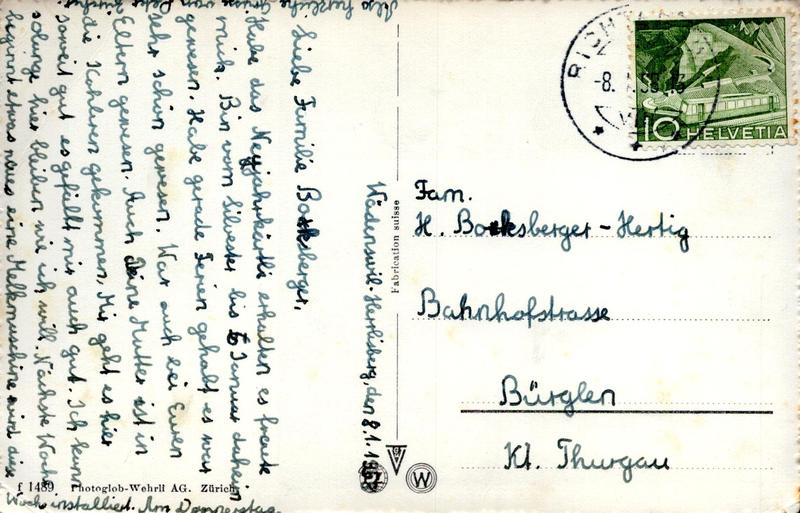 Wädenswil-Herrlisberg, den 8.1.
Liebe Familie Boxksberger,
Habe das Neujahrkärtli erhalten es freute
mich. Bin vom Silvester bis 6 Januar daheim
gewesen. Habe gerade Ferien gehabt es war
sehr schön gewesen. War auch bei Euren
Eltern gewesen. Auch Deine Mutter ist in
die Kohlären gekommen. Mir geht es hier
soweit gut es gefällt mir auch gut. Ich kann
solange hier bleiben wie ich will. Nächste Woche
beginnt etwas neues eine Melkmaschine wird diese
Woche installiert. Am Donnerstag.
Also herzliche Grüsse von
Fabrication suisse
f 1489 Photoglob-Wehrli AG. Zürich
W
-8.
10 HELVETIA
Fam.
H. Boxksberger-Hertig
Bahnhofstrasse
Bürglen
Kt. Thurgau